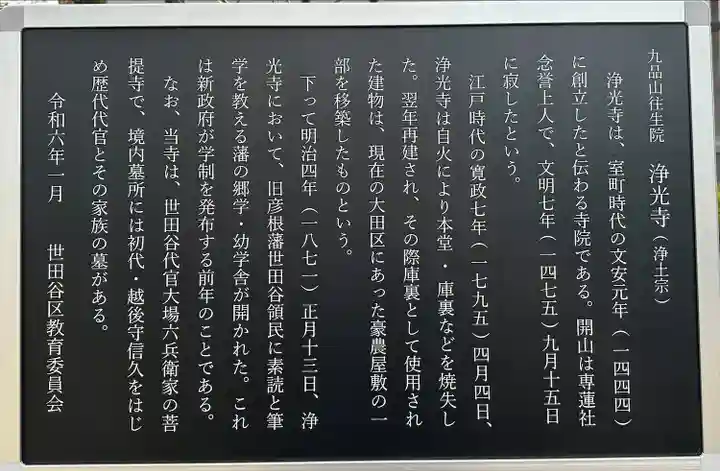 九品山往生院　浄光寺（浄土宗）
　浄光寺は、室町時代の文安元年（一四四四）
に創立したと伝わる寺院である。開山は専蓮社
念誉上人で、文明七年（一四七五）九月十五日
に寂したという。
　江戸時代の寛政七年（一七九五）四月四日、
浄光寺は自火により本堂・庫裏などを焼失し
た。翌年再建され、その際庫裏として使用され
た建物は、現在の大田区にあった豪農屋敷の一
部を移築したものという。
　下って明治四年（一八七一）正月十三日、浄
光寺において、旧彦根藩世田谷領民に素読と筆
学を教える藩の郷学・幼学舎が開かれた。これ
は新政府が学制を発布する前年のことである。
　なお、当寺は、世田谷代官大場六兵衛家の菩
提寺で、境内墓所には初代・越後守信久をはじ
め歴代代官とその家族の墓がある。
　令和六年一月　　世田谷区教育委員会